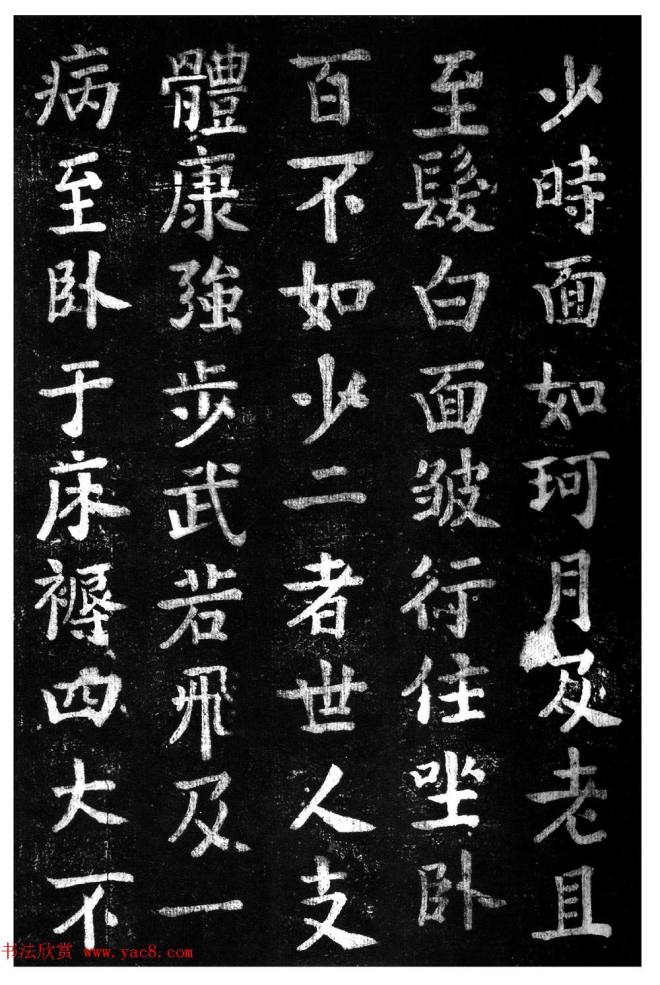 少時面如珂月及老且
至髮白面皺行住坐卧
百不如少二者世人支
體康強步武若飛及一
病至卧于床褥四大不
书法欣赏 www.yac8.com